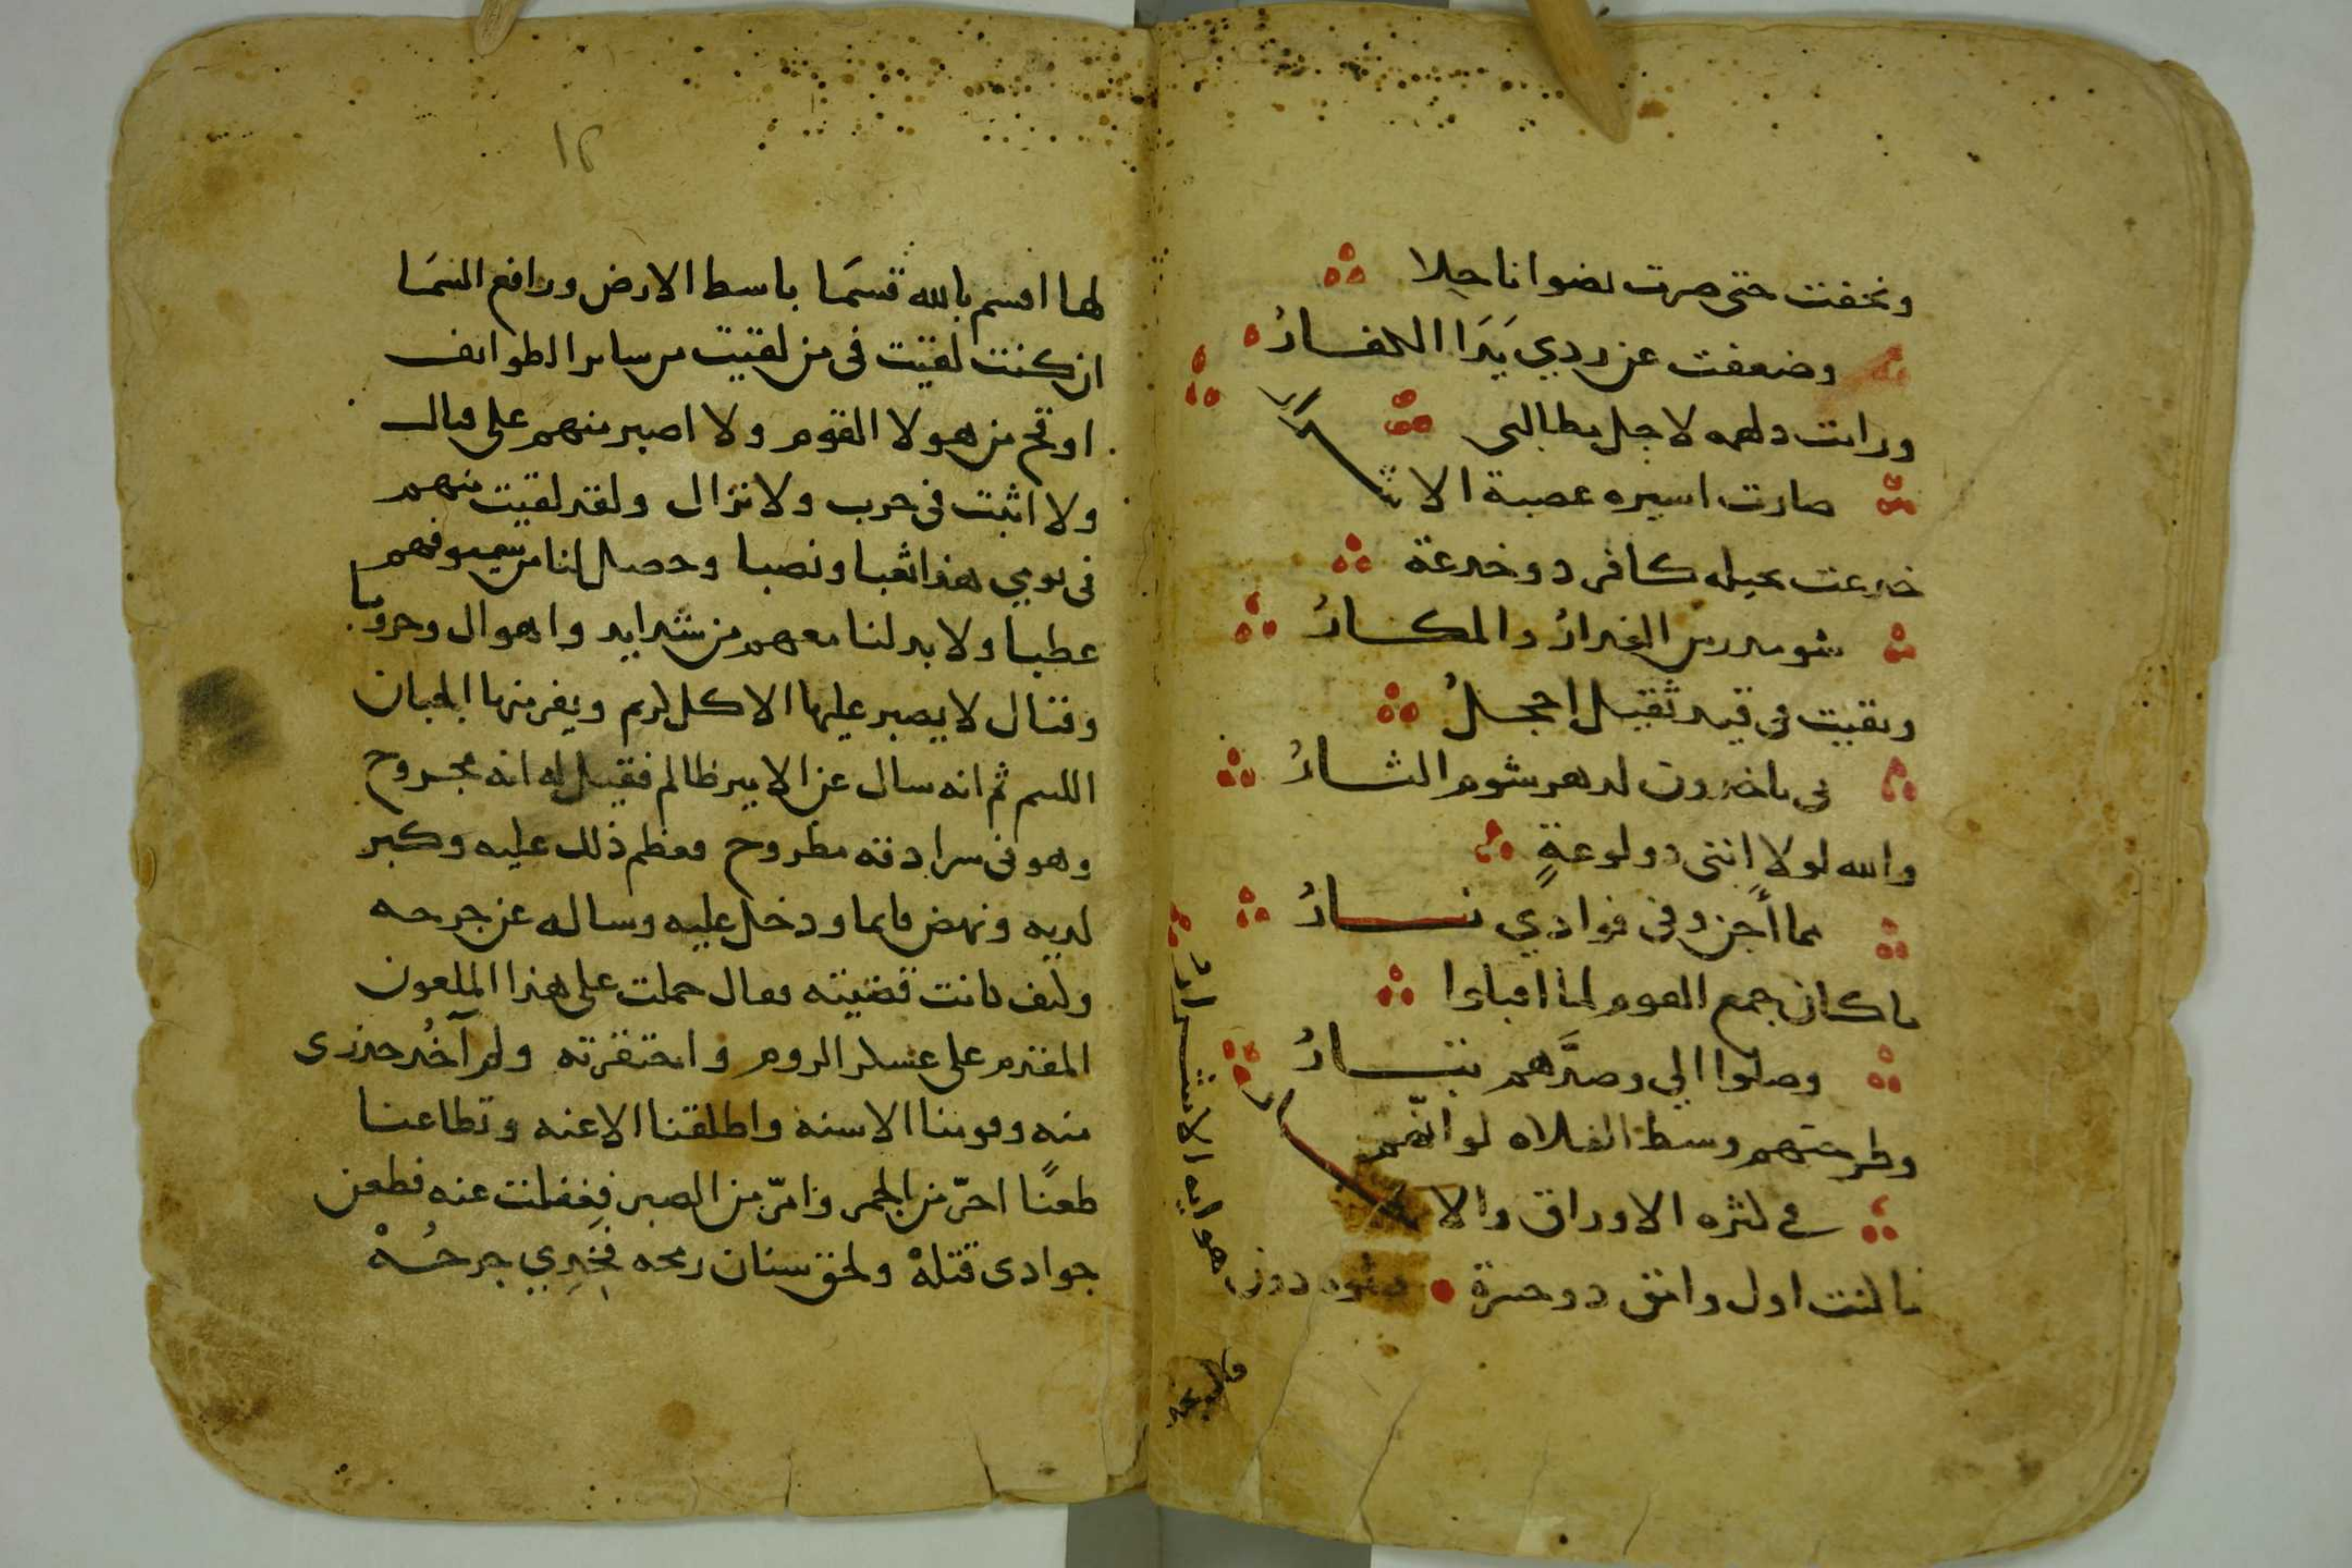 ونحفت حتى صرت نضوا ناحلا
وضعفت عن ردي يدا
ورات دلهمه لاجل مطالبى
صارت اسيره عصبة الاشرار
خدعت بحيله كافر دو خدعة
شومدرس الغدار والمكار
وبقيت فى قيد ثقيل احجل
والله لولا اننى دو لوعة
مما أجز وفى فوادي نار
ما كان جمع القوم لما اقبلوا
وصلوا الي وصدهم بتار
وطرحتهم وسط الفلاه لو انهم
في كثره الاوراق والا
ما كنت اول وامق دو حسرة
هوايه الاشرار
١٢
لها اقسم بالله قسما باسط الارض ورافع السما
ان كنت لقيت فى من لقيت من ساير الطوايف
اوقح من هولا القوم ولا اصبر منهم على قتال
ولا اثبت فى حرب ولا نزال ولقد لقيت منهم
فى يومي هذا تعبا ونصبا وحصل لنا من سيوفهم
عطبا ولا بد لنا معهم من شدايد واهوال وحروبا
وقتال لا يصبر عليها الا كل كريم ويفر منها الجبان
اللييم ثم انه سال عن الامير ظالم فقيل له انه مجروح
وهو فى سرادقه مطروح فعظم ذلك عليه وكبر
لديه ونهض قايما ودخل عليه وساله عن جرحه
وكيف كانت قضيته فقال حملت على هذا الملعون
المقدم على عسكر الروم واحتقرته ولم آخذ حذرى
منه وقومنا الاسنه واطلقنا الاعنه وتطاعنا
طعنًا احرّ من الجمر وامرّ من الصبر فغفلت عنه فطعن
جوادى قتله ولحق سنان رمحه فخدي جرحه